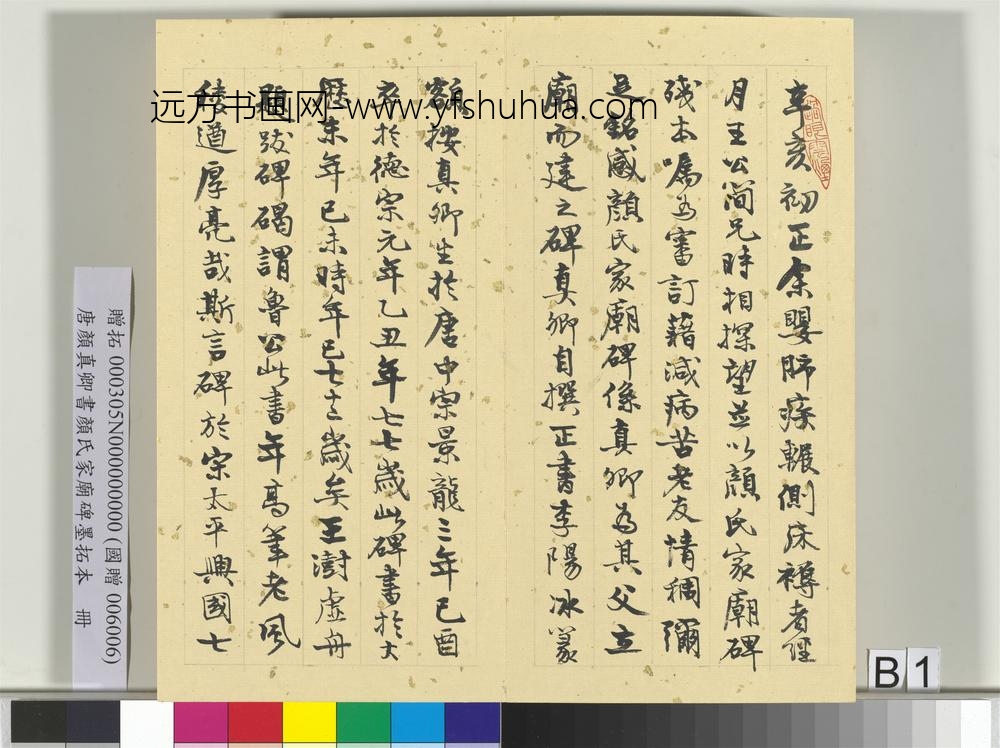 辛亥初正余嬰肺疾輾側床褥者經
月王公簡兄時相探望並以顏氏家廟碑
殘本囑為審訂藉減病苦老友情稠彌
足銘感顏氏家廟碑係真卿為其父立
廟而建之碑真卿自撰正書李陽冰篆
額按真卿生於唐中宗景龍三年己酉
卒於德宗元年乙丑年七七歲此碑書於大
歷末年己未時年已七十二歲矣王澍虛舟
題跋碑碣謂魯公此書年高筆老風
稜遒厚亮哉斯言碑於宋太平興國七
远方书画网-www.yfshuhua.com
贈拓 000305N000000000 (國贈 006006)
唐顏真卿書顏氏家廟碑墨拓本 冊
B 1